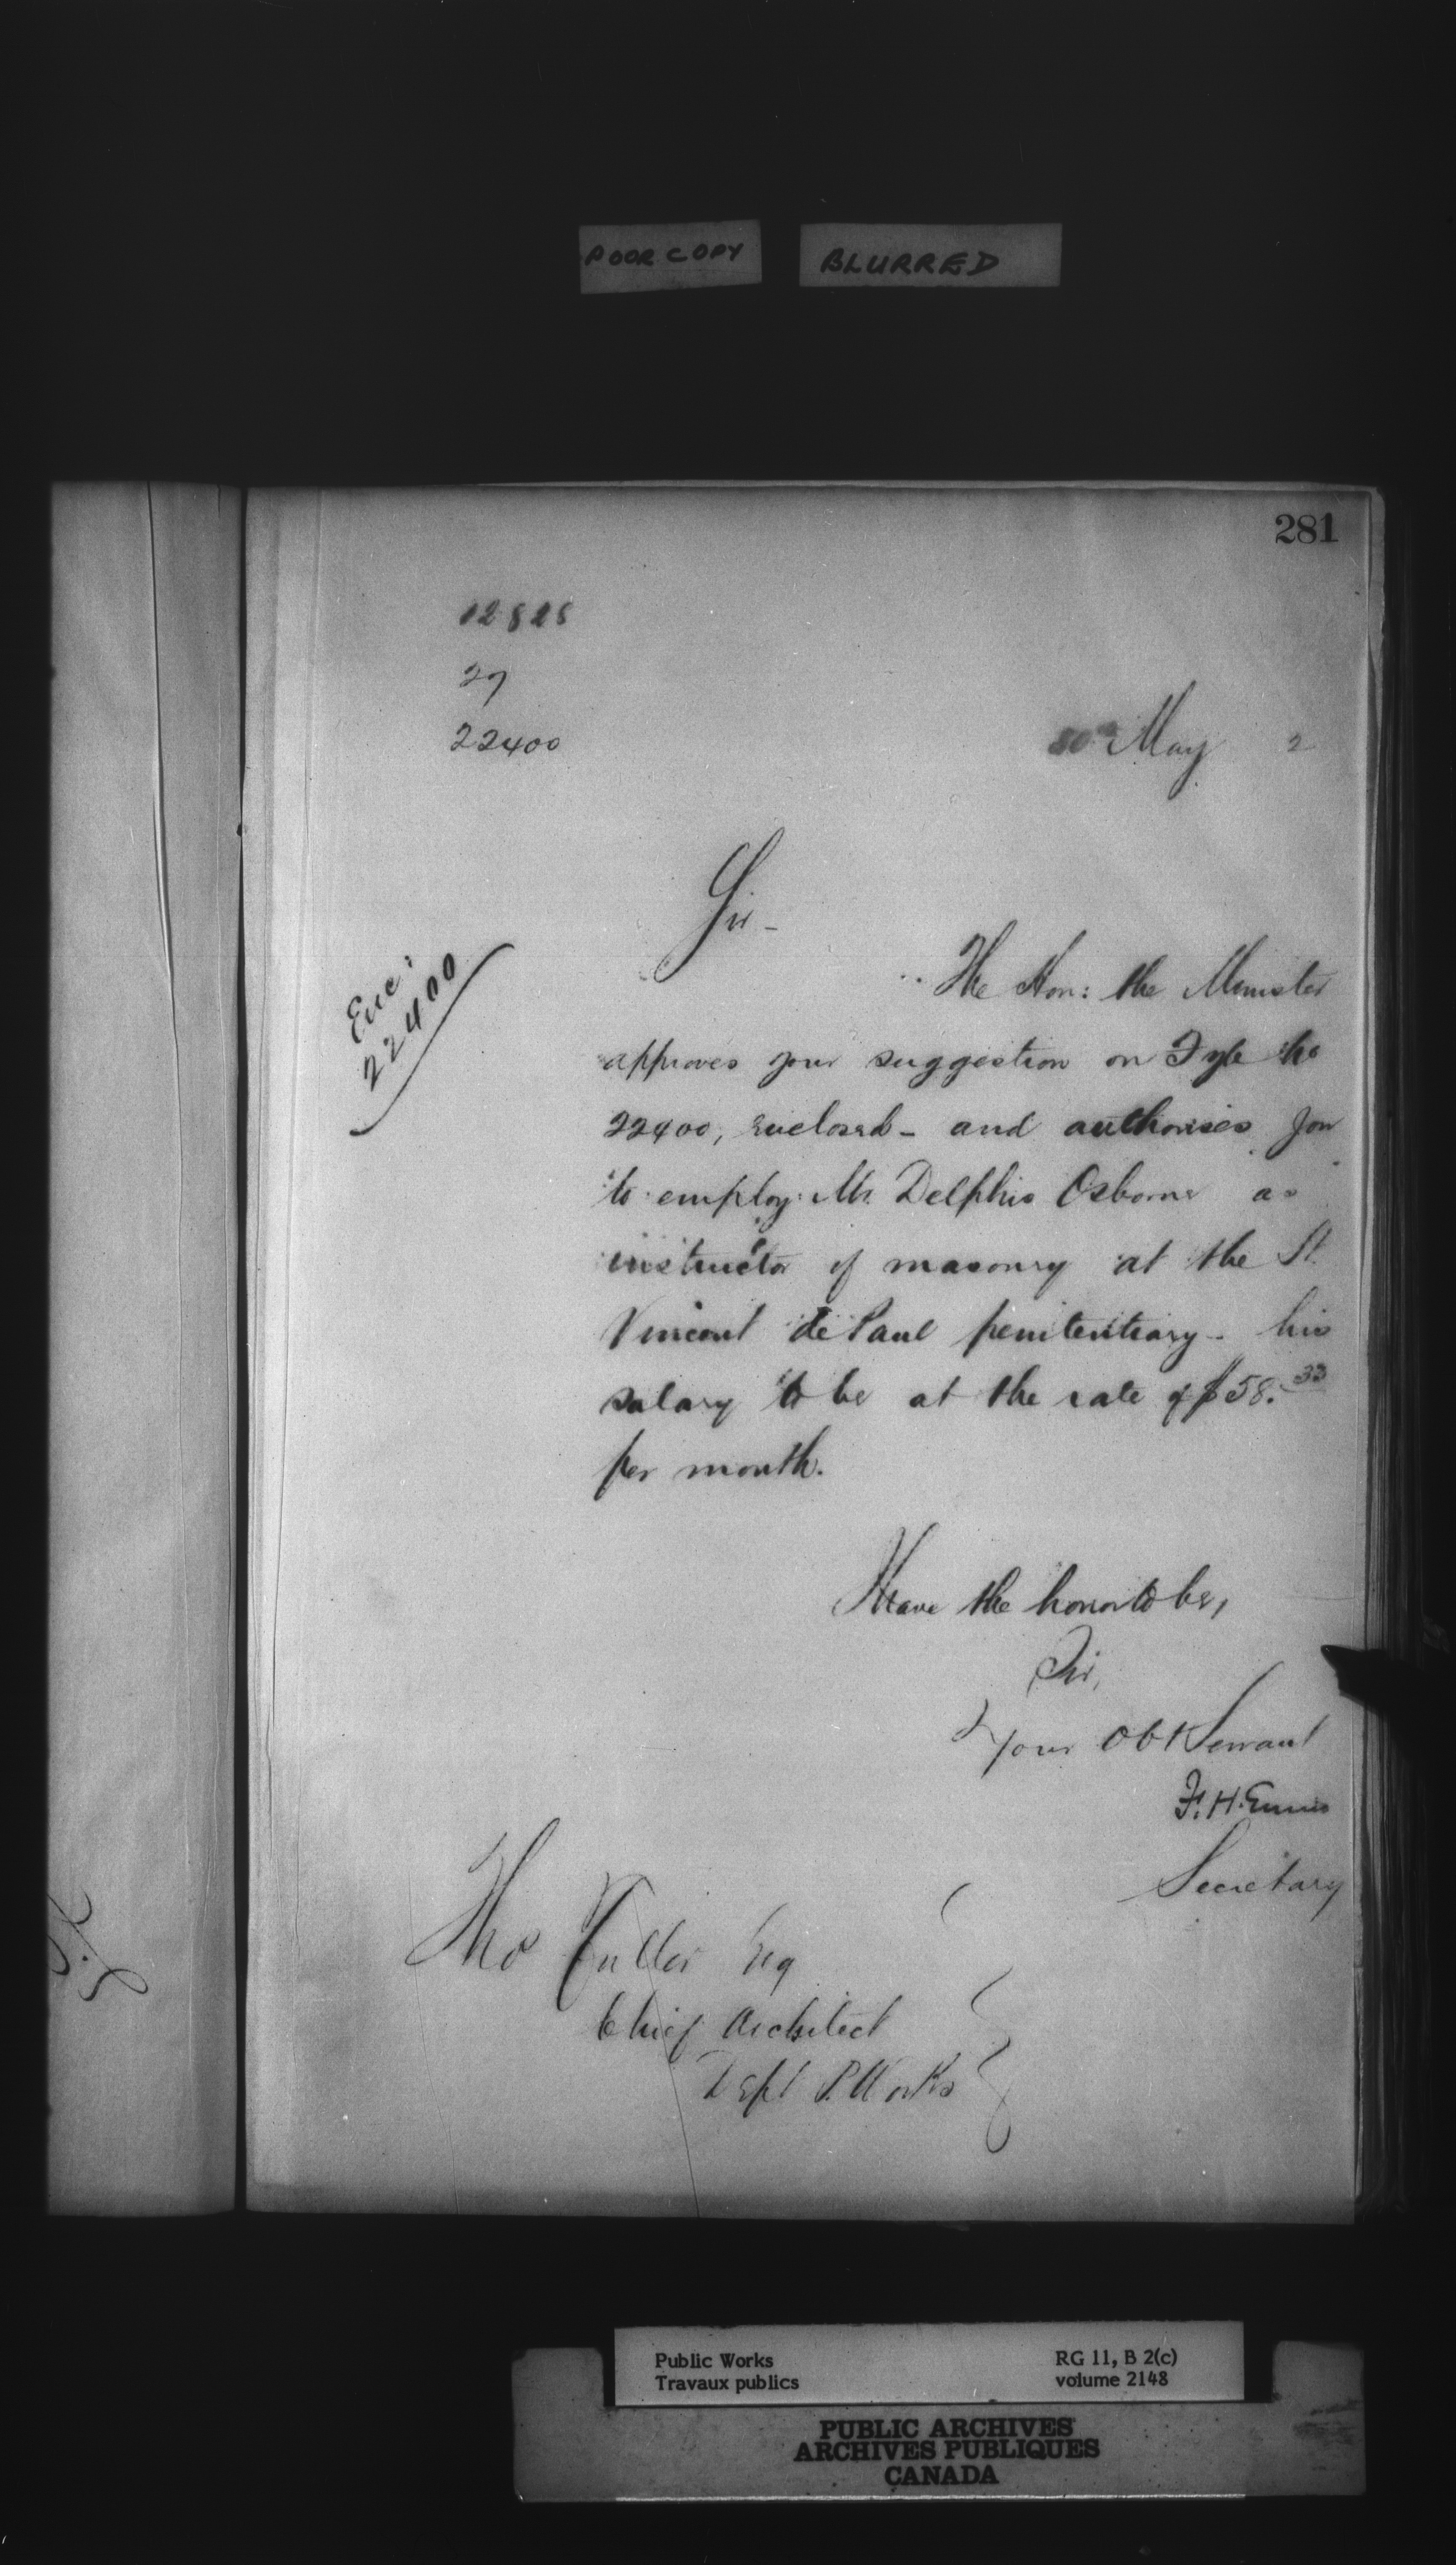 POOR COPY
BLURRED
281
12828
27
22400
30th May 2
Sir -
Enc:
22400
The Hon: the Minister
approves your suggestion on Fyle No
22400, enclosed - and authorises you
to employ Mr. Delphis Osborne as
instructor of masonry at the St.
Vincent de Paul penitentiary - his
salary to be at the rate of $58.33
per month.
Have the honor to be,
Sir,
Your Obt Servant
F. H. Ennis
Secretary
Thos Fuller Esq
Chief Architect
Dept P. Works
Public Works
Travaux publics
RG 11, B 2(c)
volume 2148
PUBLIC ARCHIVES
ARCHIVES PUBLIQUES
CANADA